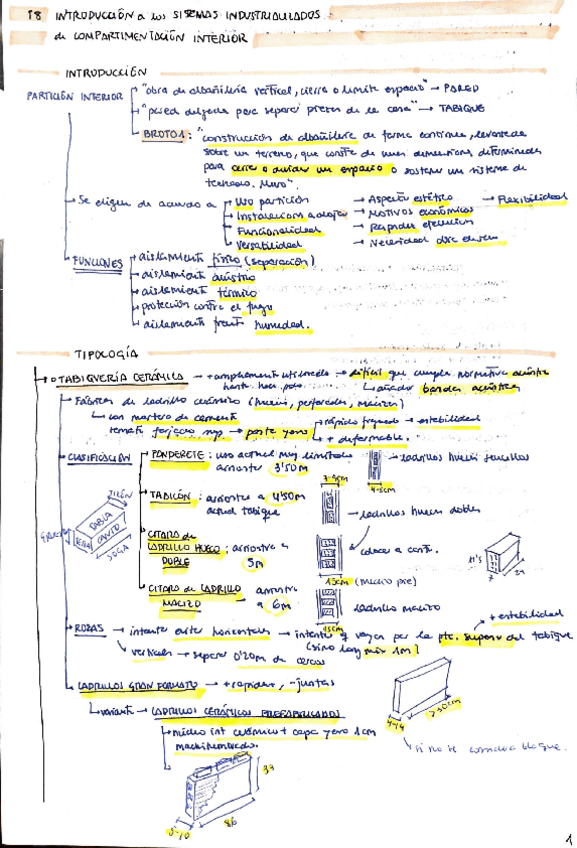 T8 INTRODUCCIÓN a los SISEMAS INDUSTRIALIZADOS
de COMPARTIMENTACIÓN INTERIOR
INTRODUCCIÓN
PARTICIÓN INTERIOR
"obra de albañilería vertical, cierra o limita espacio" → PARED
"pared delgada para separar piezas de la casa" → TABIQUE
BROTO 1: "construcción de albañilería de forma continua, levantada
sobre un terreno, que consta de unas dimensiones determinadas
para cerrar o dividir un espacio o sostener un sistema de
terreno, Muro".
Se eligen de acuerdo a
Uso partición → Aspecto estético → Flexibilidad
Instalaciones a alojar → Motivos económicos
Funcionalidad → Rapidez ejecución
Versatilidad → Necesidad
FUNCIONES
aislamiento físico (separación)
aislamiento acústico
aislamiento térmico
protección contra el fuego
aislamiento frente humedad.
TIPOLOGÍA
TABIQUERÍA CERÁMICA → + ampliamente utilizada → difícil que cumpla normativa acústica
hasta hace poco
añadir bandas acústicas
Fábrica de ladrillo cerámico (hueco, perforado, macizo)
con mortero de cemento
remate forjado sup. → pasta yeso
rápido fraguado → estabilidad
+ deformable.
CLASIFICACIÓN
PANDERETE: uso actual muy limitado
arriostre 3'50m
4-5cm
ladrillos hueco sencillos
TABICÓN: arriostre a 4'50m
actual tabique
7-9cm
ladrillos hueco dobles
CITARA de
LADRILLO HUECO: arriostre a
DOBLE 5m
colocar a
15cm (
CITARA de LADRILLO arriostre
MACIZO a 6m
ladrillo macizo
15cm
TIZÓN
TABLA
CANTO
TESTA
SOGA
GRUESO
11'5
7
24
ROZAS → intentar evitar horizontales → intentar q vayan por la pte. superior del tabique
(sino long máx 1m)
+ estabilidad
vertical → separar 0'20m de cercos
LADRILLOS GRAN FORMATO → + rápidos, - juntas
variante → LADRILLOS CERÁMICOS PREFABRICADOS
núcleo int cerámico + capa yeso 1cm
machihembrado.
4-14
>30cm
si no se considera bloque.
33
86
5-10
1